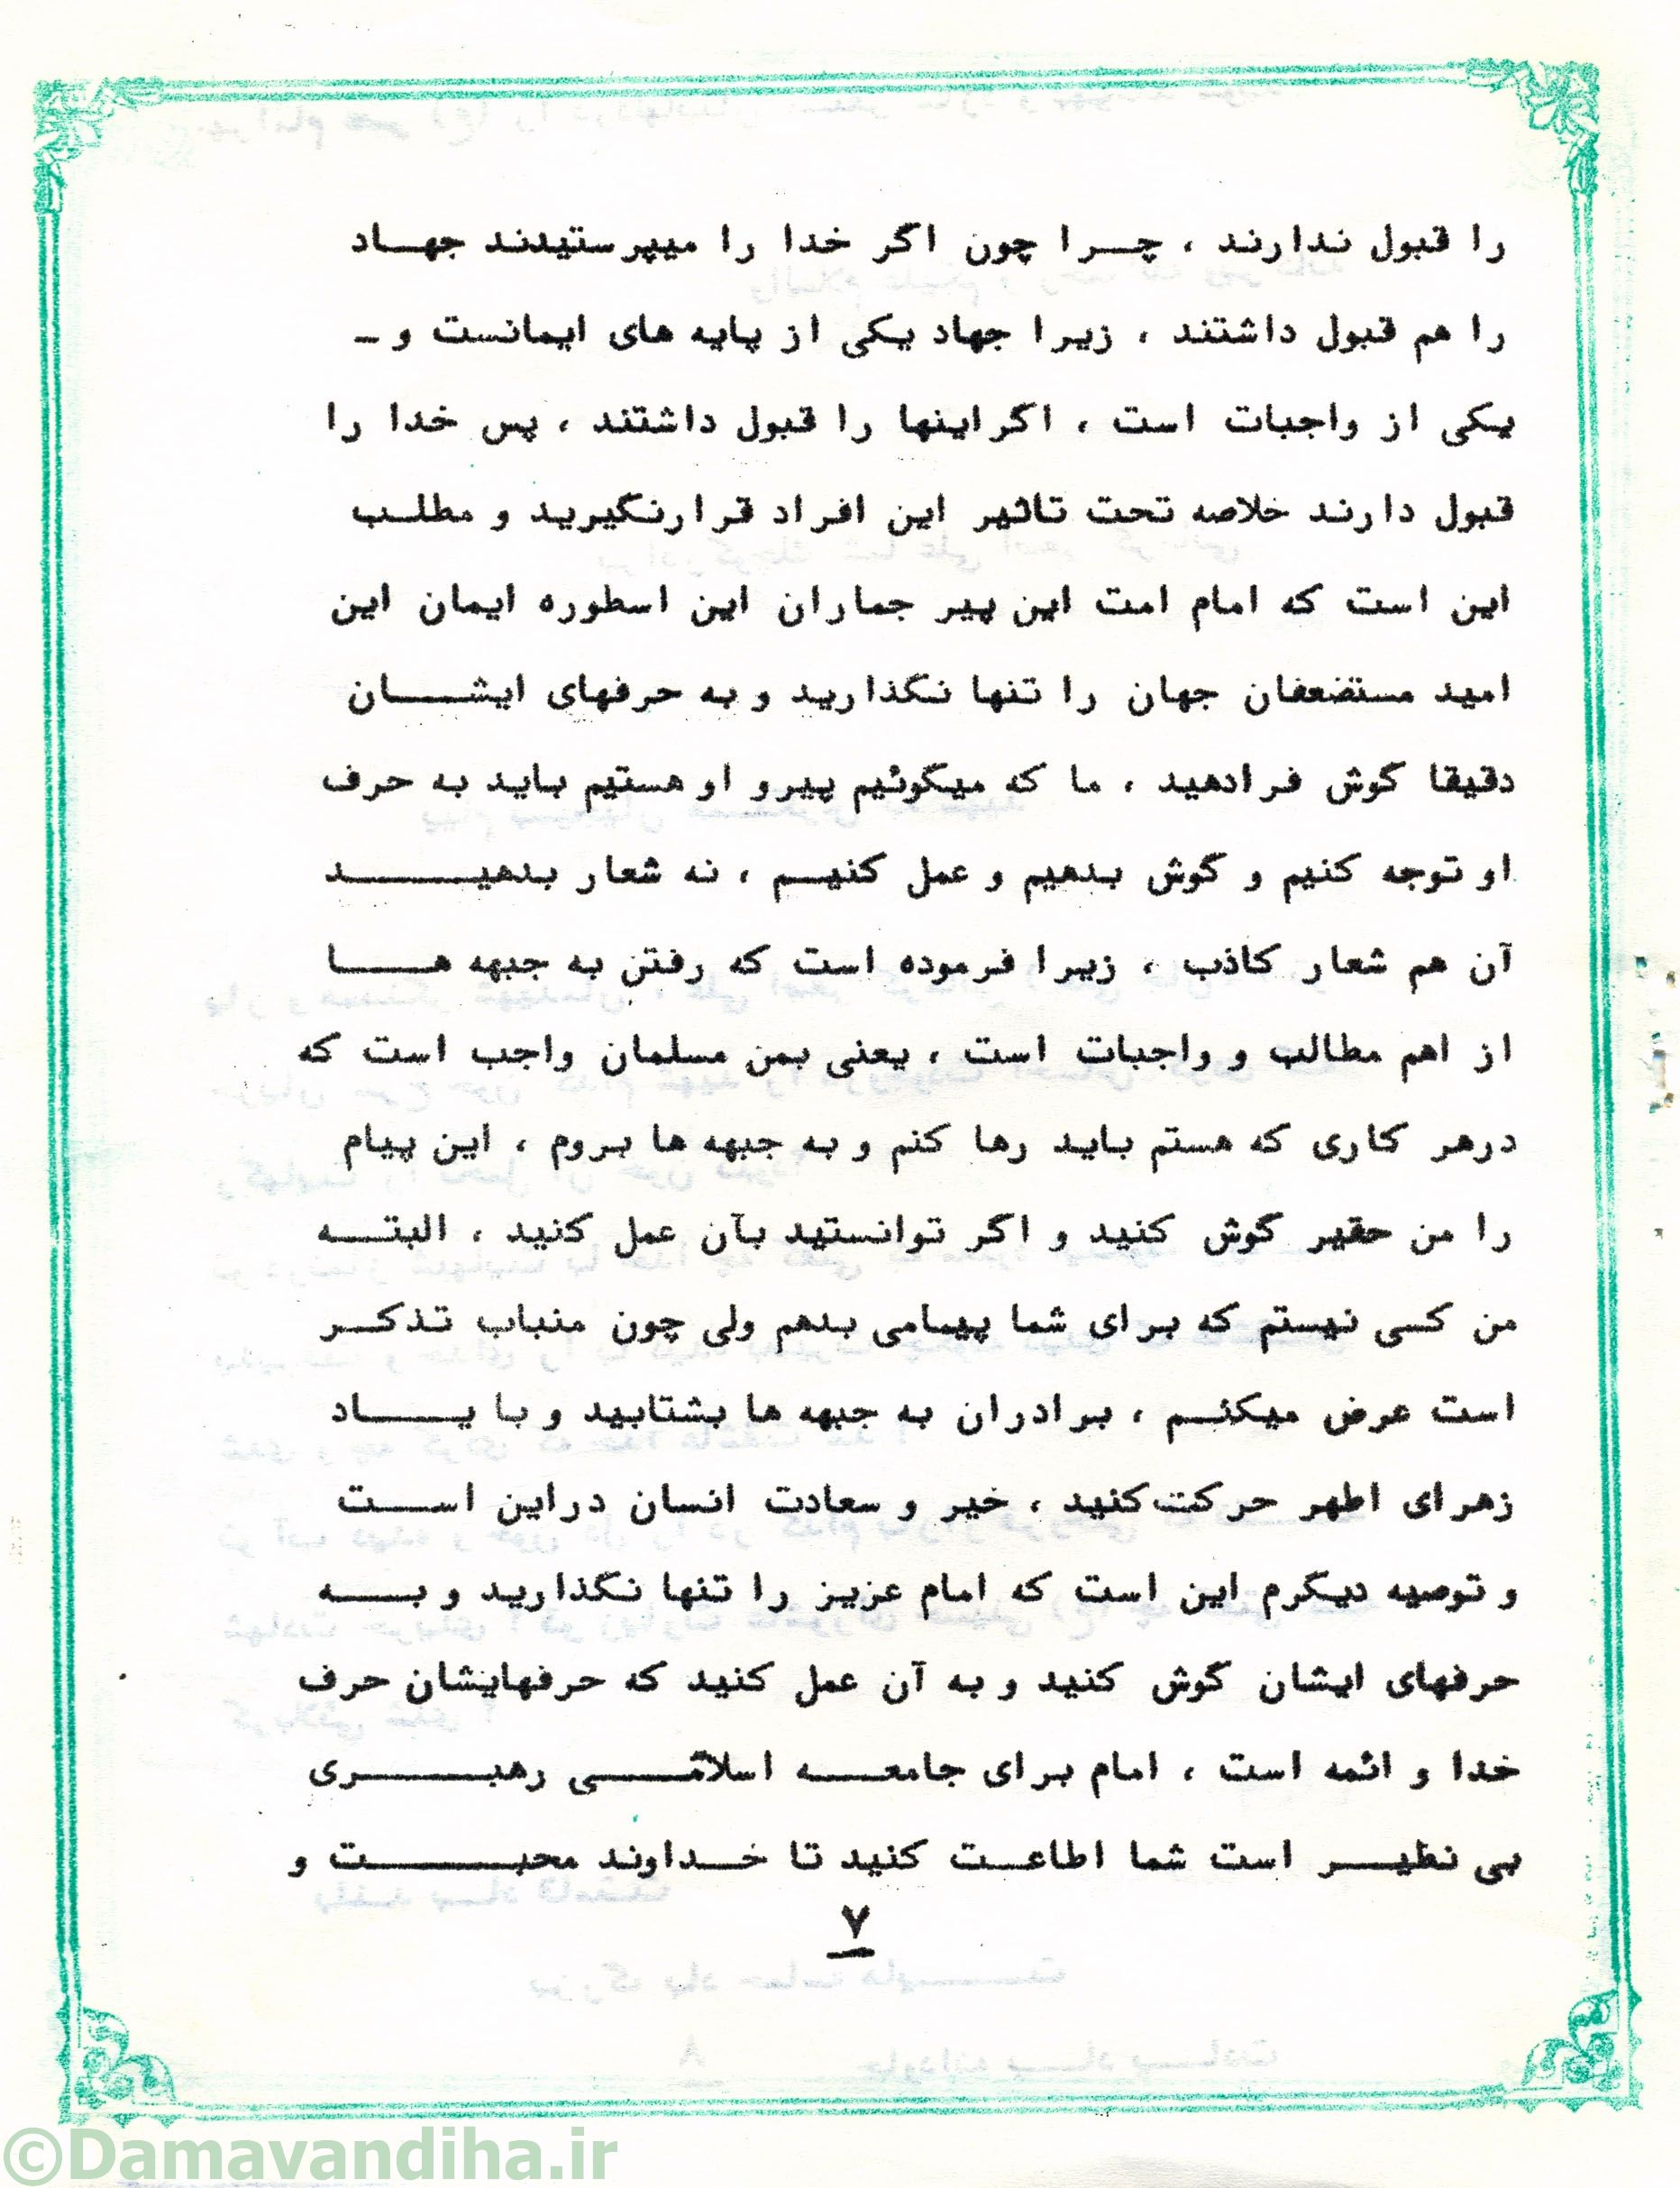 را قبول ندارند ، چرا چون اگر خدا را میپرستیدند جهاد
را هم قبول داشتند ، زیرا جهاد یکی از پایه های ایمانست و -
یکی از واجبات است ، اگراینها را قبول داشتند ، پس خدا را
قبول دارند خلاصه تحت تاثیر این افراد قرارنگیرید و مطلب
این است که امام امت این پیر جماران این اسطوره ایمان این
امید مستضعفان جهان را تنها نگذارید و به حرفهای ایشان
دقیقا گوش فرادهید ، ما که میگوئیم پیرو او هستیم باید به حرف
او توجه کنیم و گوش بدهیم و عمل کنیم ، نه شعار بدهید
آن هم شعار کاذب ، زیرا فرموده است که رفتن به جبهه ها
از اهم مطالب و واجبات است ، یعنی بمن مسلمان واجب است که
درهر کاری که هستم باید رها کنم و به جبهه ها بروم ، این پیام
را من حقیر گوش کنید و اگر توانستید بآن عمل کنید ، البته
من کسی نیستم که برای شما پیمامی بدهم ولی چون منباب تذکر
است عرض میکنم ، برادران به جبهه ها بشتابید و با یاد
زهرای اطهر حرکت کنید ، خیر و سعادت انسان دراین است
و توصیه دیگرم این است که امام عزیز را تنها نگذارید و به
حرفهای ایشان گوش کنید و به آن عمل کنید که حرفهایشان حرف
خدا و ائمه است ، امام برای جامعه اسلامی رهبری
بی نظیر است شما اطاعت کنید تا خداوند محبت و
۷
©Damavandiha.ir